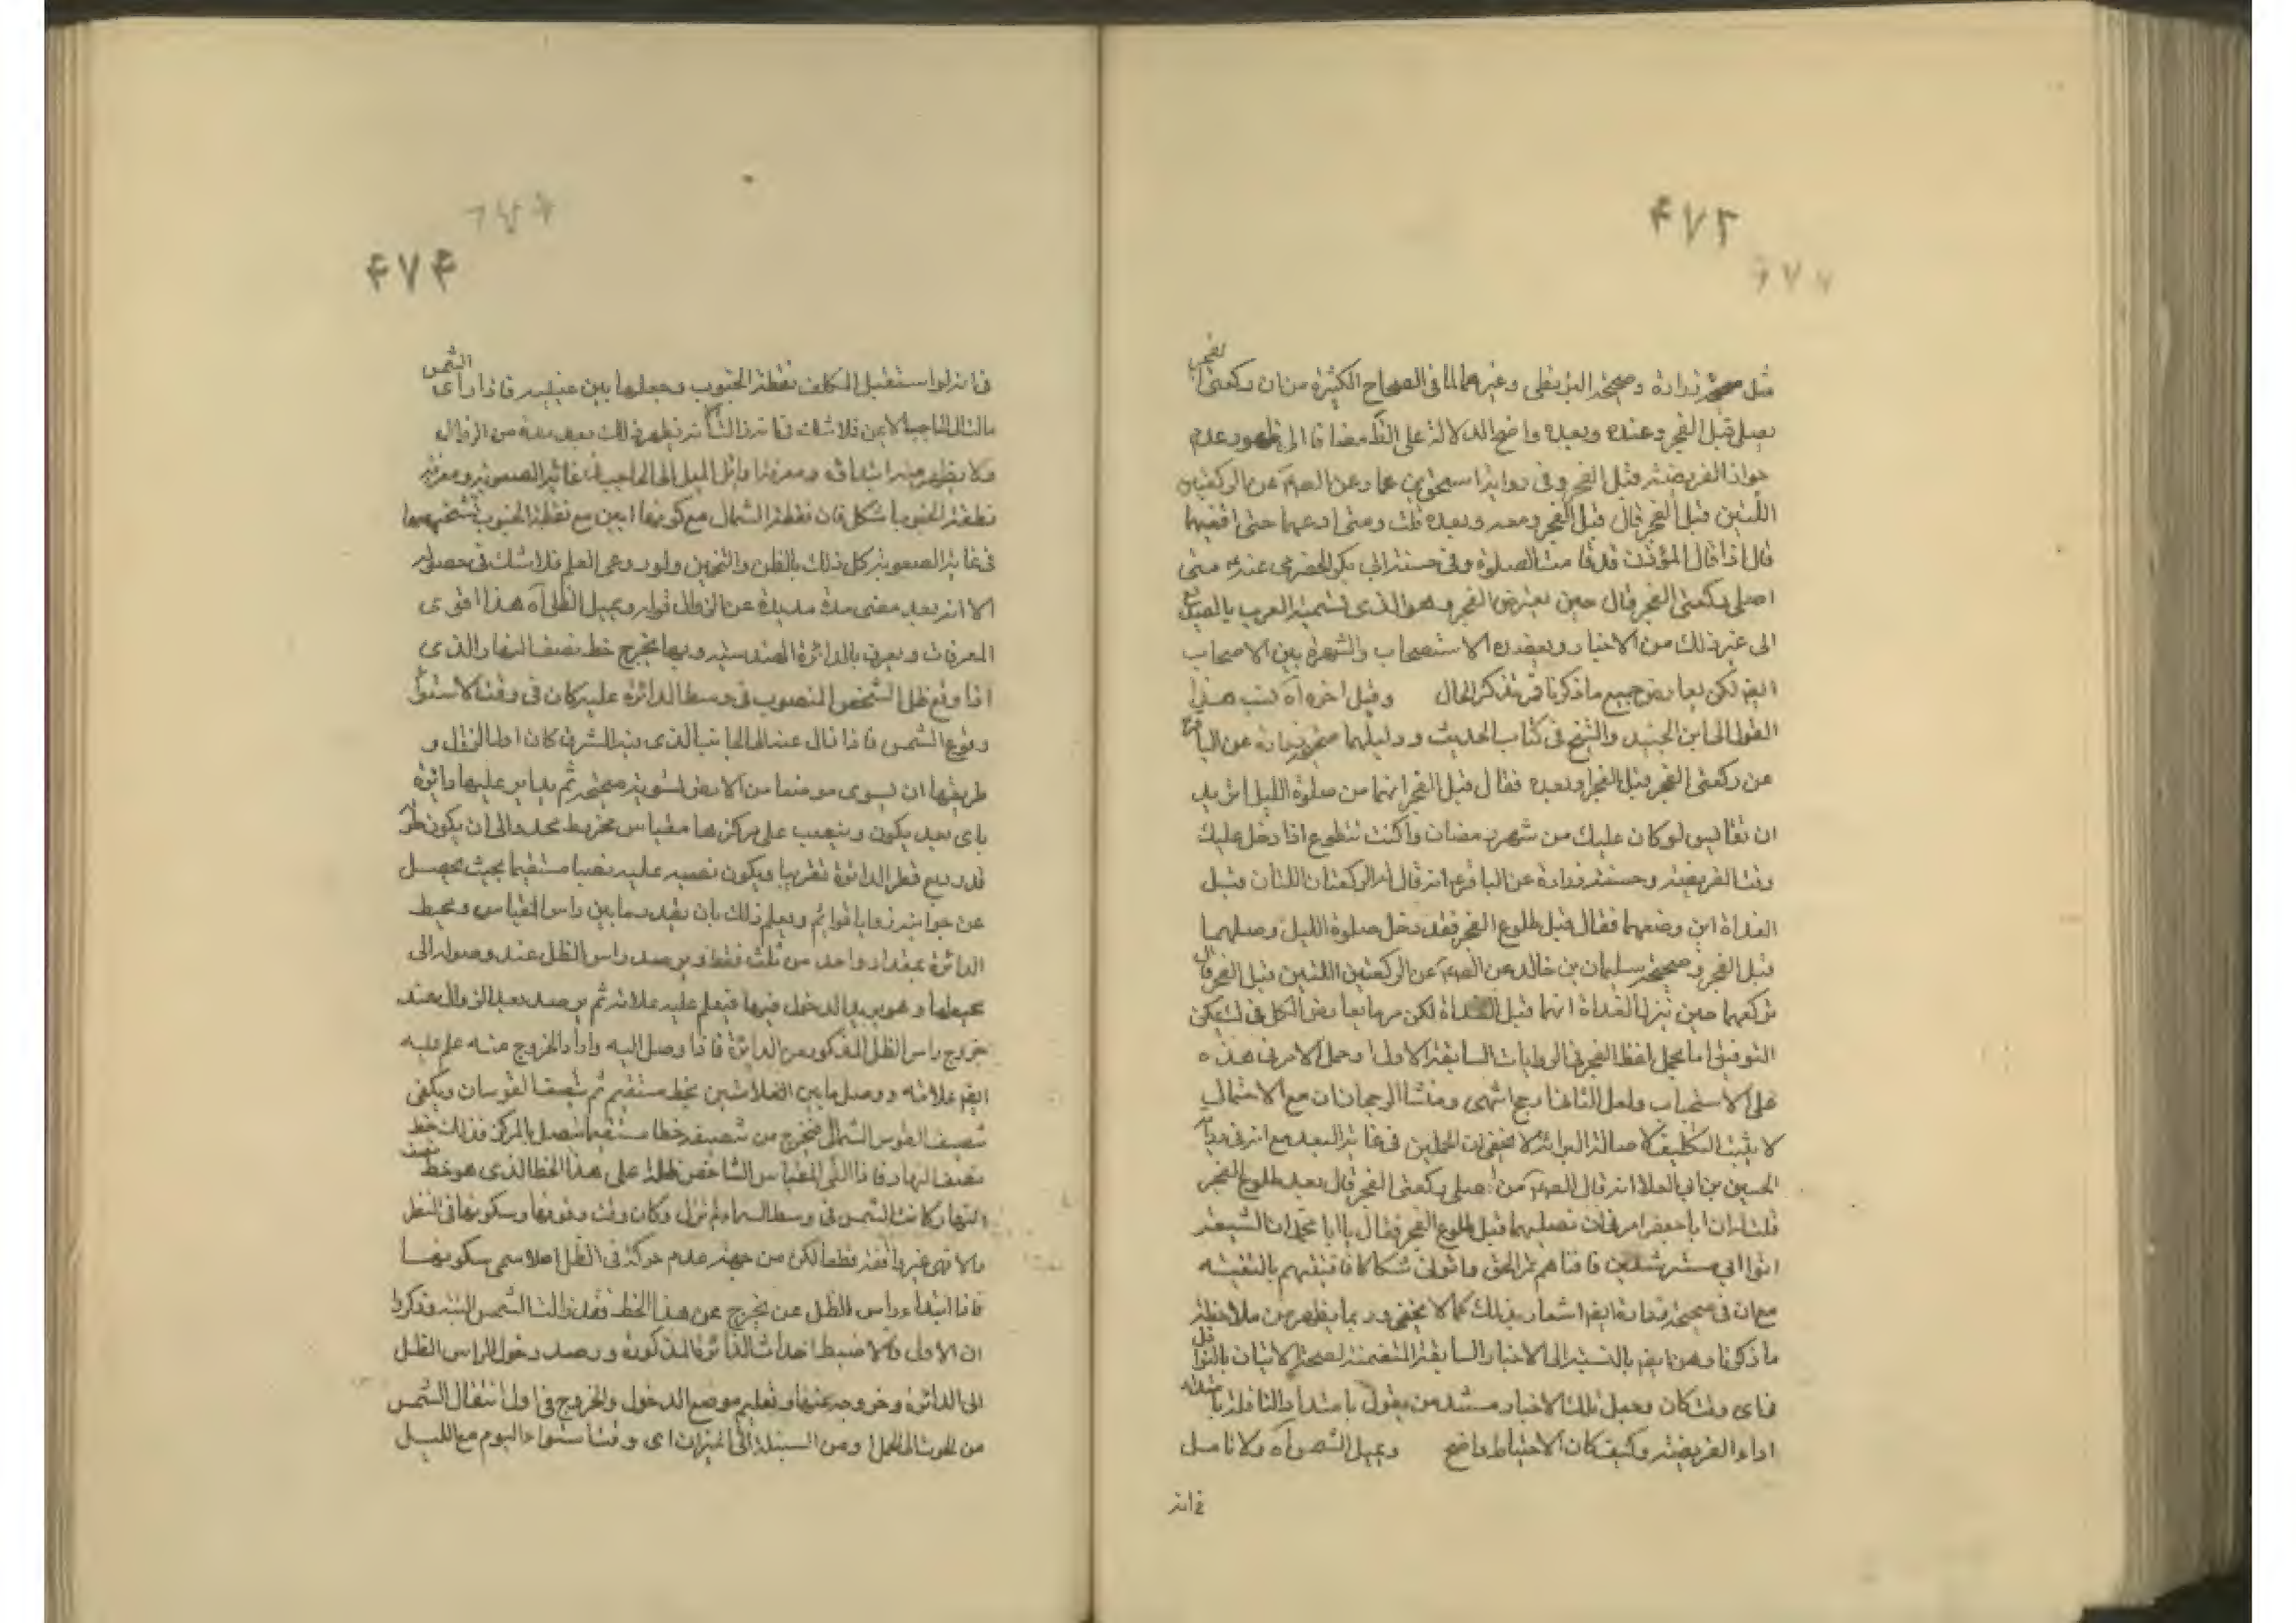 ۴۷۳
مثل صحيحة زرارة وصحيحة البزنطى وغيرهما لما فى الصحاح الكثيرة من ان ركعتى الفجر
يصلى قبل الفجر وعنده وبعده واضح الدلالة على الظ مضافا الى ظهور عدم
جواز الفريضة قبل الفجر وفى رواية اسحق بن عمار عن الصم عن الركعتين
اللتين قبل الفجر قال قبل الفجر ومعه وبعده قلت ومتى ادعهما حتى اقضيهما
قال اذا قال المؤذن قد قامت الصلوة وفى حسنة ابى بكر الحضرمى عنه متى
اصلى ركعتى الفجر قال حين يعترض الفجر وهو الذى تسميه العرب بالصديع
الى غير ذلك من الاخبار ويعضده الاستصحاب والشهرة بين الاصحاب
ايضم لكن يعارض جميع ما ذكرنا فتذكر الحال وقيل اخره اه نسب هذا
القول الى ابن الجنيد والشيخ فى كتاب الحديث ودليلهما صحيحة زرارة عن الباقر
عن ركعتى الفجر قبل الفجر او بعده فقال قبل الفجر انهما من صلوة الليل اتريد
ان تقايس لو كان عليك من شهر رمضان واكنت تتطوع اذا دخل عليك
وقت الفريضة وحسنة زرارة عن الباقر انه قال له الركعتان اللتان قبل
الغداة اين وضعهما فقال قبل طلوع الفجر فقد دخل صلوة الليل وصلهما
قبل الفجر وصحيحة سليمان بن خالد عن الصم عن الركعتين اللتين قبل الفجر قال
تركعهما حين تنزل الغداة انهما قبل الغداة لكن مر ما يعارض الكل فى ليمكن
التوفيق اما بحمل لفظ الفجر فى الروايات السابقة الاول او حمل الامر فى هذه
على الاستحباب ولعل الثانى ارجح اشهرى ومنشا الرجحانان مع الاحتمال
لا يثبت التكليف لاصالة البرائة لا يخفى ان الحملين فى غاية البعد مع انه فى رواية
الحسين بن ابى العلا انه قال الصم من اصلى ركعتى الفجر قال بعد طلوع الفجر
قلت له ان ابا جعفر امرنى ان نصليهما قبل طلوع الفجر فقال يا ابا محمد ان الشيعة
اتوا ابى مسترشدين فافتاهم بمر الحق واتونى شكاكا فافتيتهم بالتقية
مع ان فى صحيحة زرارة ايضم اشعار بذلك كما لا يخفى وربما يظهر من ملاحظة
ما ذكرنا وهن ايضم بالنسبة الى الاخبار السابقة المتضمنة لصحة الاتيان بالنوافل
فى اى وقت كان وحمل تلك الاخبار مستند من يقول بامتداد النافلة بامتداد
اداء الفريضة وكيف كان الاحتياط واضح ويميل الشمس اه ولا تامل
فى انه
۴۷۴
فى انه لو استقبل المكلف نقطة الجنوب وجعلها بين عينيه فاذا راى الشمس
مالت الى الحاجب الايمن فلا شك فى انه زالت الا انه يظهر ذلك بعد مدة من الزوال
ولا يظهر منه ابتداؤه ومعرفة اوائل الميل الى الحاجب فى غاية الصعوبة ومعرفة
نقطة الجنوب اشكل فان نقطة الشمال مع كونها ابين مع نقطة الجنوب تشخيصهما
فى غاية الصعوبة كل ذلك بالظن والتخمين ولو روعى العلم فلا شك فى حصوله
الا انه بعد مضى مدة مديدة عن الزوال قوله ويميل الظل اه هذا اقوى
المعرفات ويعرف بالدائرة الهندسية وبها يخرج خط نصف النهار الذى
اذا وقع ظل الشخص المنصوب فى وسط الدائرة عليه كان فى وقت الاستواء
وقوع الشمس فاذا زال عنه الى الجانب الذى فيه المشرق كان اول الزوال و
طريقها ان يسوى موضعا من الارض تسوية صحيحة ثم يدار عليها دائرة
باى بعد يكون وينصب على مركزها مقياس مخروط محدد الى ان يكون طوله
قدر ربع قطر الدائرة تقريبا ويكون نصبه عليه نصبا مستقيما بحيث يحصل
عن جوانبه زوايا قوائم ويعلم ذلك بان يقدر ما بين راس المقياس ومحيط
الدائرة بمقدار واحد من ثلث نقط ويرصد راس الظل عند وصوله الى
محيطها وهو يريد الدخول فيها فيعلم عليه علامة ثم يرصد بعد الزوال عند
خروج راس الظل المذكور من الدائرة فاذا وصل اليه واراد الخروج منه علم عليه
ايضم علامة ووصل ما بين العلامتين بخط مستقيم ثم ينصف القوسان ويكفى
تنصيف القوس الشمالى فيخرج من تنصيفه خطا مستقيما يتصل بالمركز فذلك خط
نصف النهار فاذا القى المقياس الشاخص ظله على هذا الخط الذى هو خط نصف
النهار كانت الشمس فى وسط السماء لم تزل وكان وقت وقوفها وسكونها فى النظر
والا فهى غير واقفة قطعا لكن من جهة عدم حركة فى الظل اصلا سمى سكونها
فاذا ابتداء راس الظل عن يخرج عن هذا الخط فقد زالت الشمس البتة وذكروا
ان الاولى والاضبط احداث الدائرة المذكورة ورصد دخول الراس الظل
الى الدائرة وخروجه عنها وتعليم موضع الدخول والخروج فى اول انتقال الشمس
من الحوت الى الحمل ومن السنبلة الى الميزان اى وقت استواء اليوم مع الليل